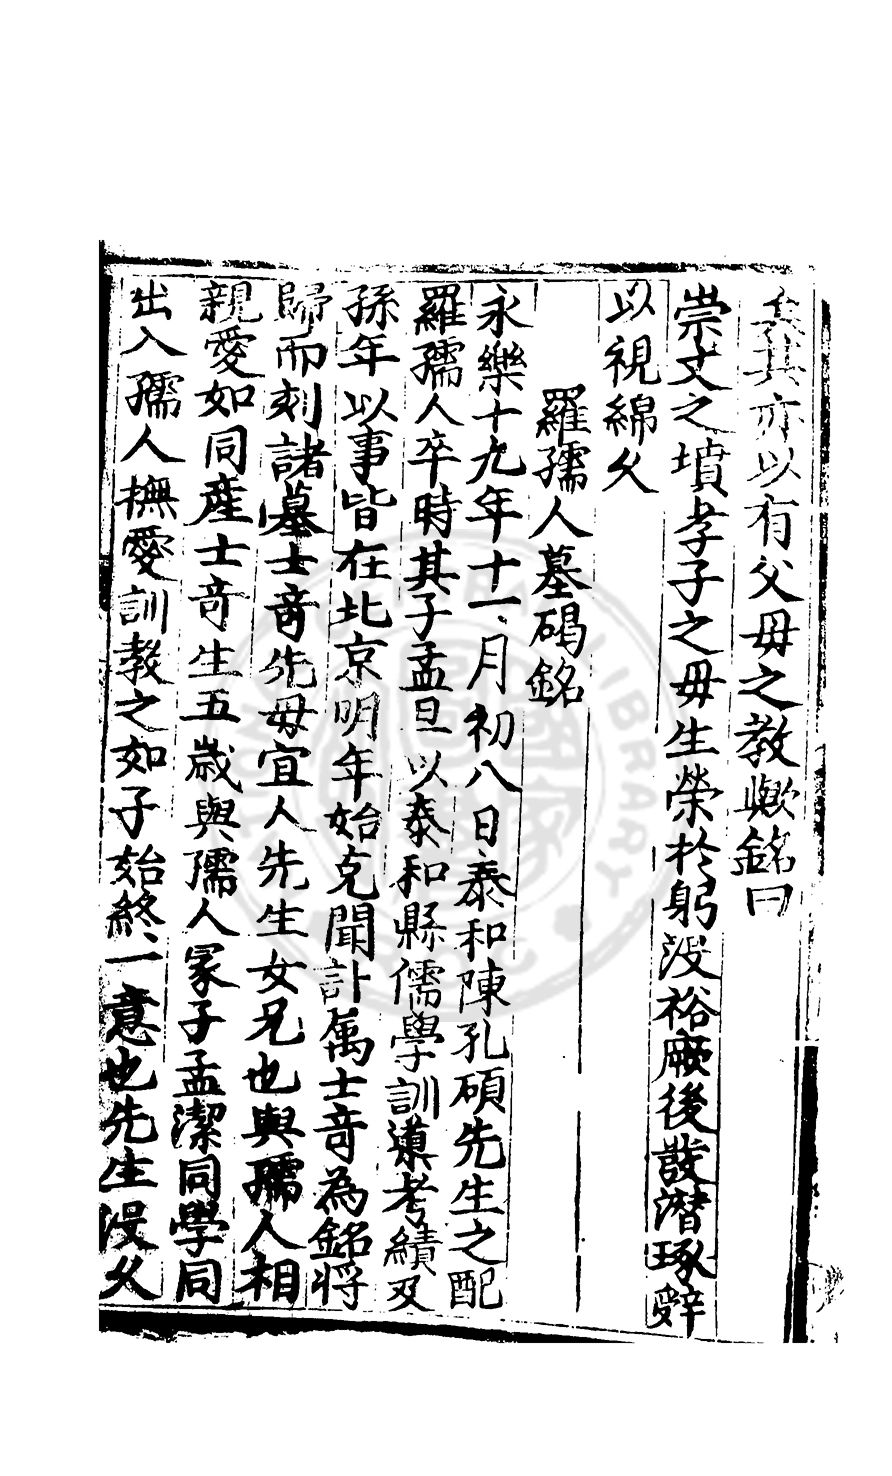 其亦以有父母之教歟銘曰
崇丈之墳孝子之毋生榮於躬沒裕厥後發潛琢辭
以視綿久
羅孺人墓碣銘
永樂十九年十一月初八日泰和陳孔碩先生之配
羅孺人卒時其子孟旦以泰和縣儒學訓導考績及
孫年以事皆在北京明年始克聞訃萬士竒為銘將
歸而刻諸墓士竒先毋宜人先生女兄也與孺人相
親愛如同產士竒生五歲與孺人冢子孟潔同學同
出入孺人撫愛訓教之如子始終一意也先生沒久